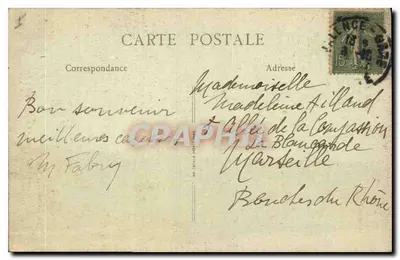 CARTE POSTALE
Correspondance
Adresse
VALENCE - GARE
Bon souvenir
meilleures
M Fabry
Mademoiselle
Madeleine Aillaud
Allée de la Compassion
La Blancarde
Marseille
Bouches du Rhône